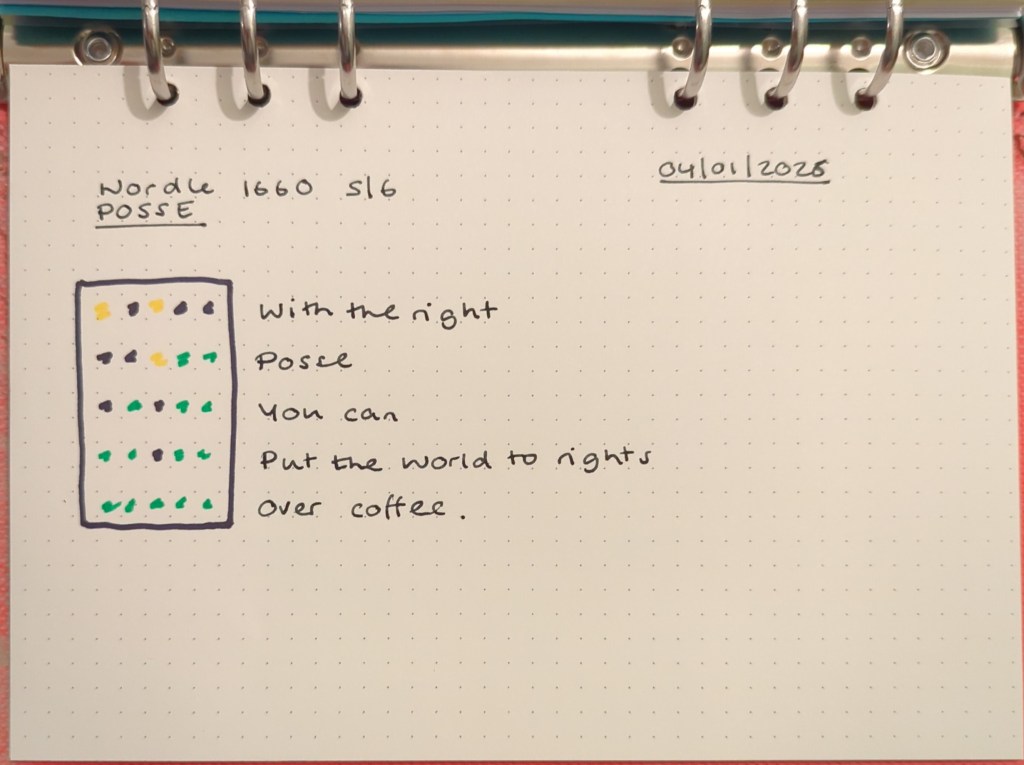 Wordle 1660 5/6
POSSE
04/01/2026
With the right
Posse
You can
Put the world to rights
Over coffee.